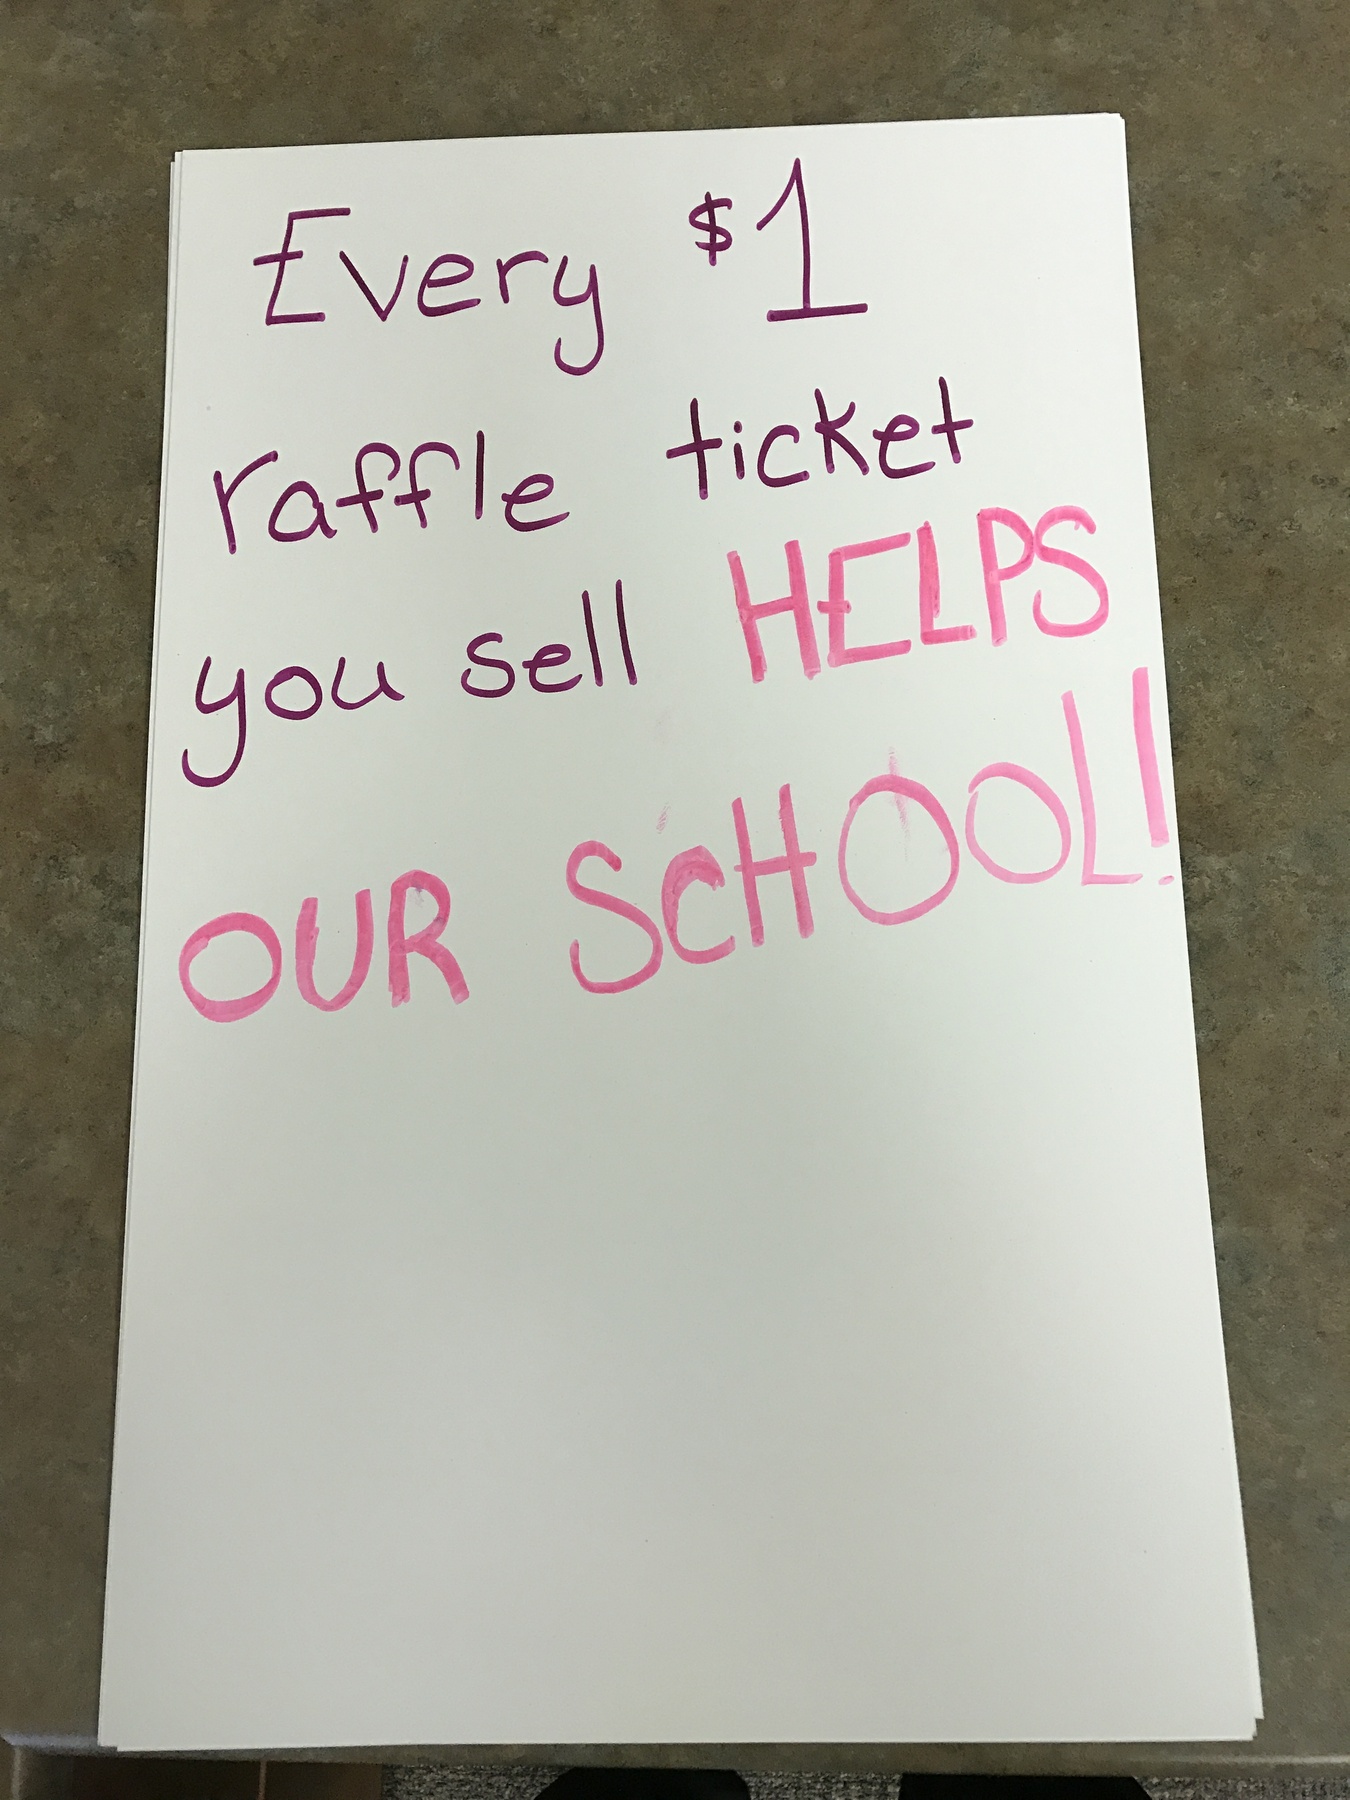 Every $1
raffle ticket
you sell HELPS
OUR SCHOOL!